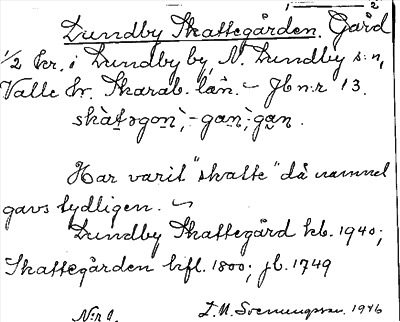 1 2
Lundby Skattegården. Gård
1/2 kr. i Lundby by, N. Lundby s:n,
Valle hr. Skarab. län. – Jb n:r 13.
skàt̯əgoṇ̀, -gaṇ̀, gaṇ.
Har varit "skatte" då namnet
gavs tydligen. ~
Lundby Skattegård kb. 1940;
Skattegården hfl. 1800; jb. 1749
N:r 1. 1946